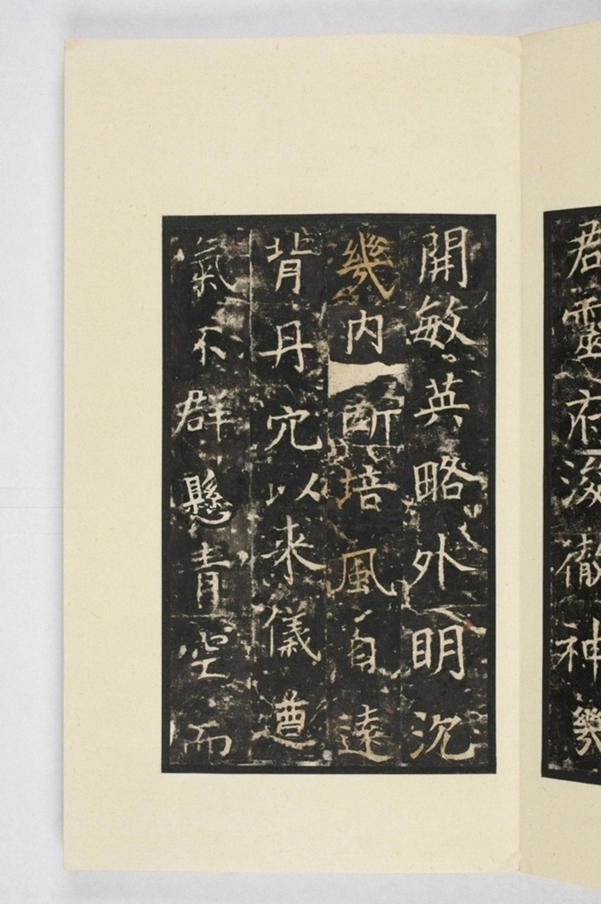 君靈府浚徹神幾
開敏英略外明沉
幾內斷培風自遠
背丹穴以来儀遵
氣不群懸青空而